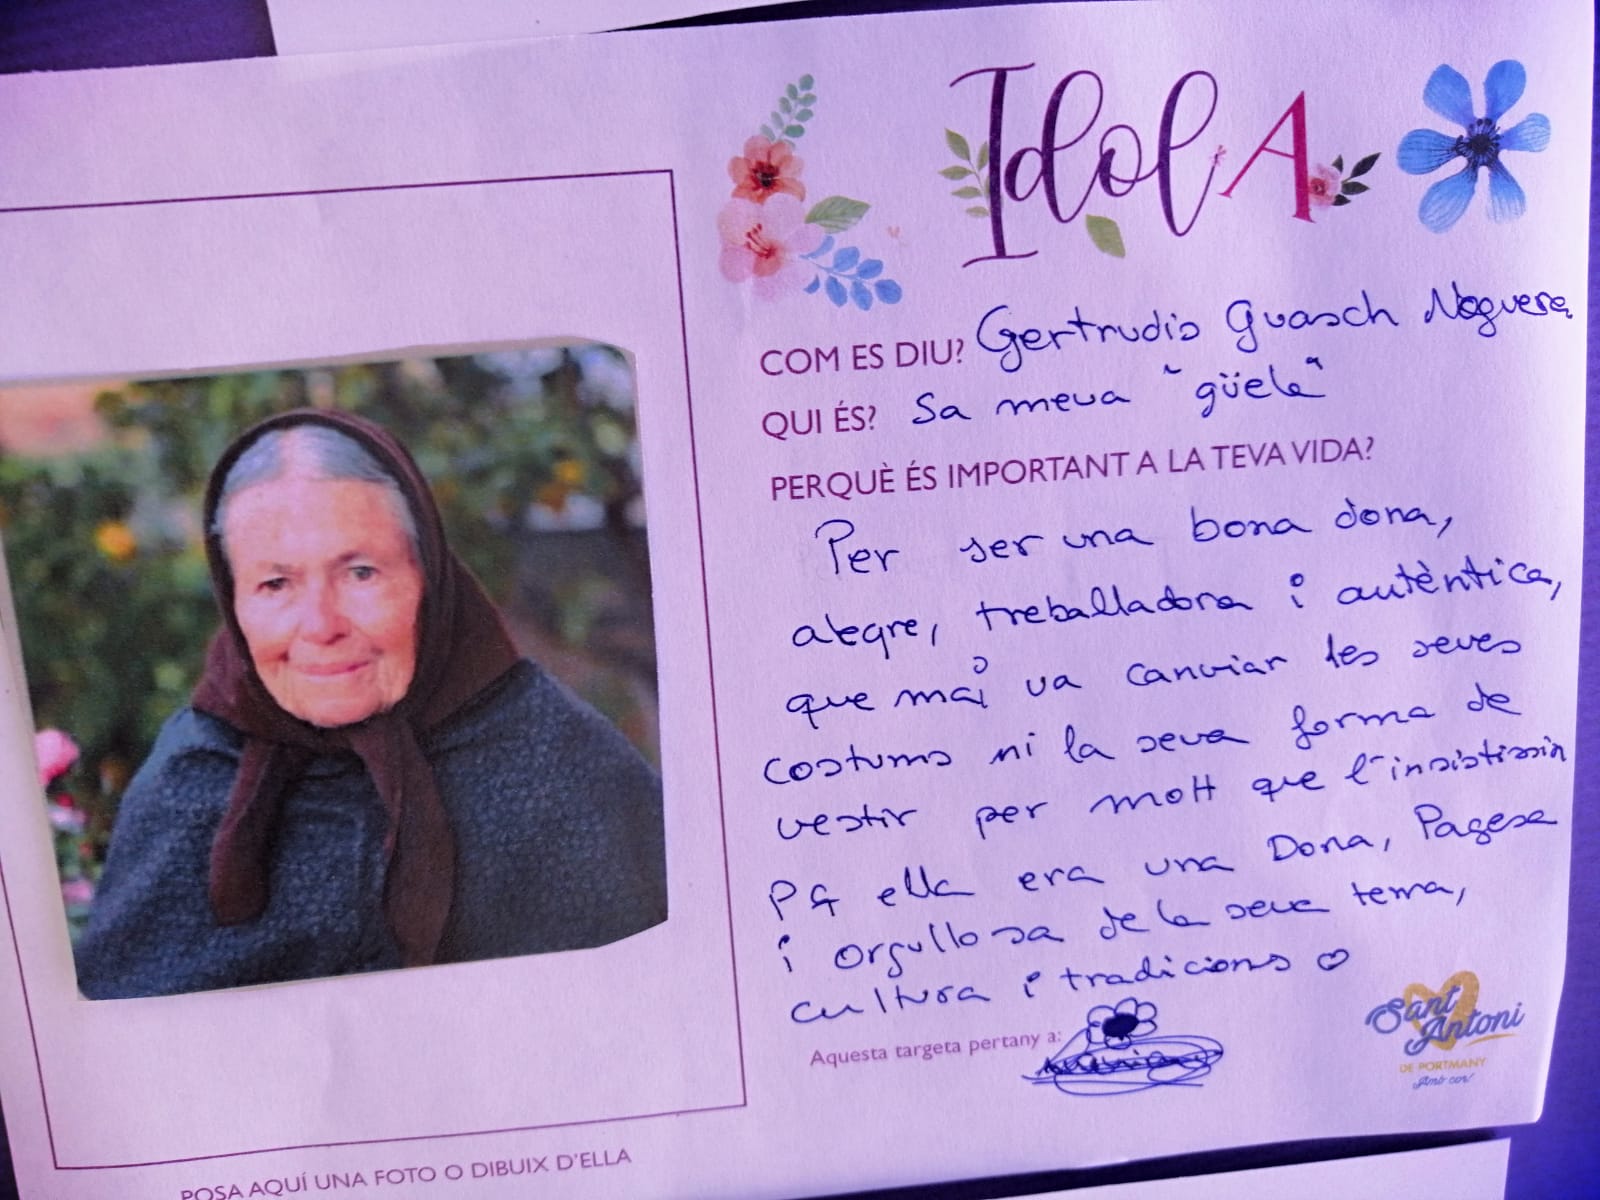 IdolA
COM ES DIU? Gertrudis Guasch Noguera
QUI ÉS? Sa meva "güela"
PERQUÈ ÉS IMPORTANT A LA TEVA VIDA?
Per ser una bona dona,
alegre, treballadora i autèntica,
que mai va canviar les seves
costums ni la seva forma de
vestir per molt que l'insistissin
PQ ella era una Dona, Pagesa
i orgullosa de la seva terra,
cultura i tradicions
Aquesta targeta pertany a:
Sant
Antoni
DE PORTMANY
Amb cor!
POSA AQUÍ UNA FOTO O DIBUIX D'ELLA